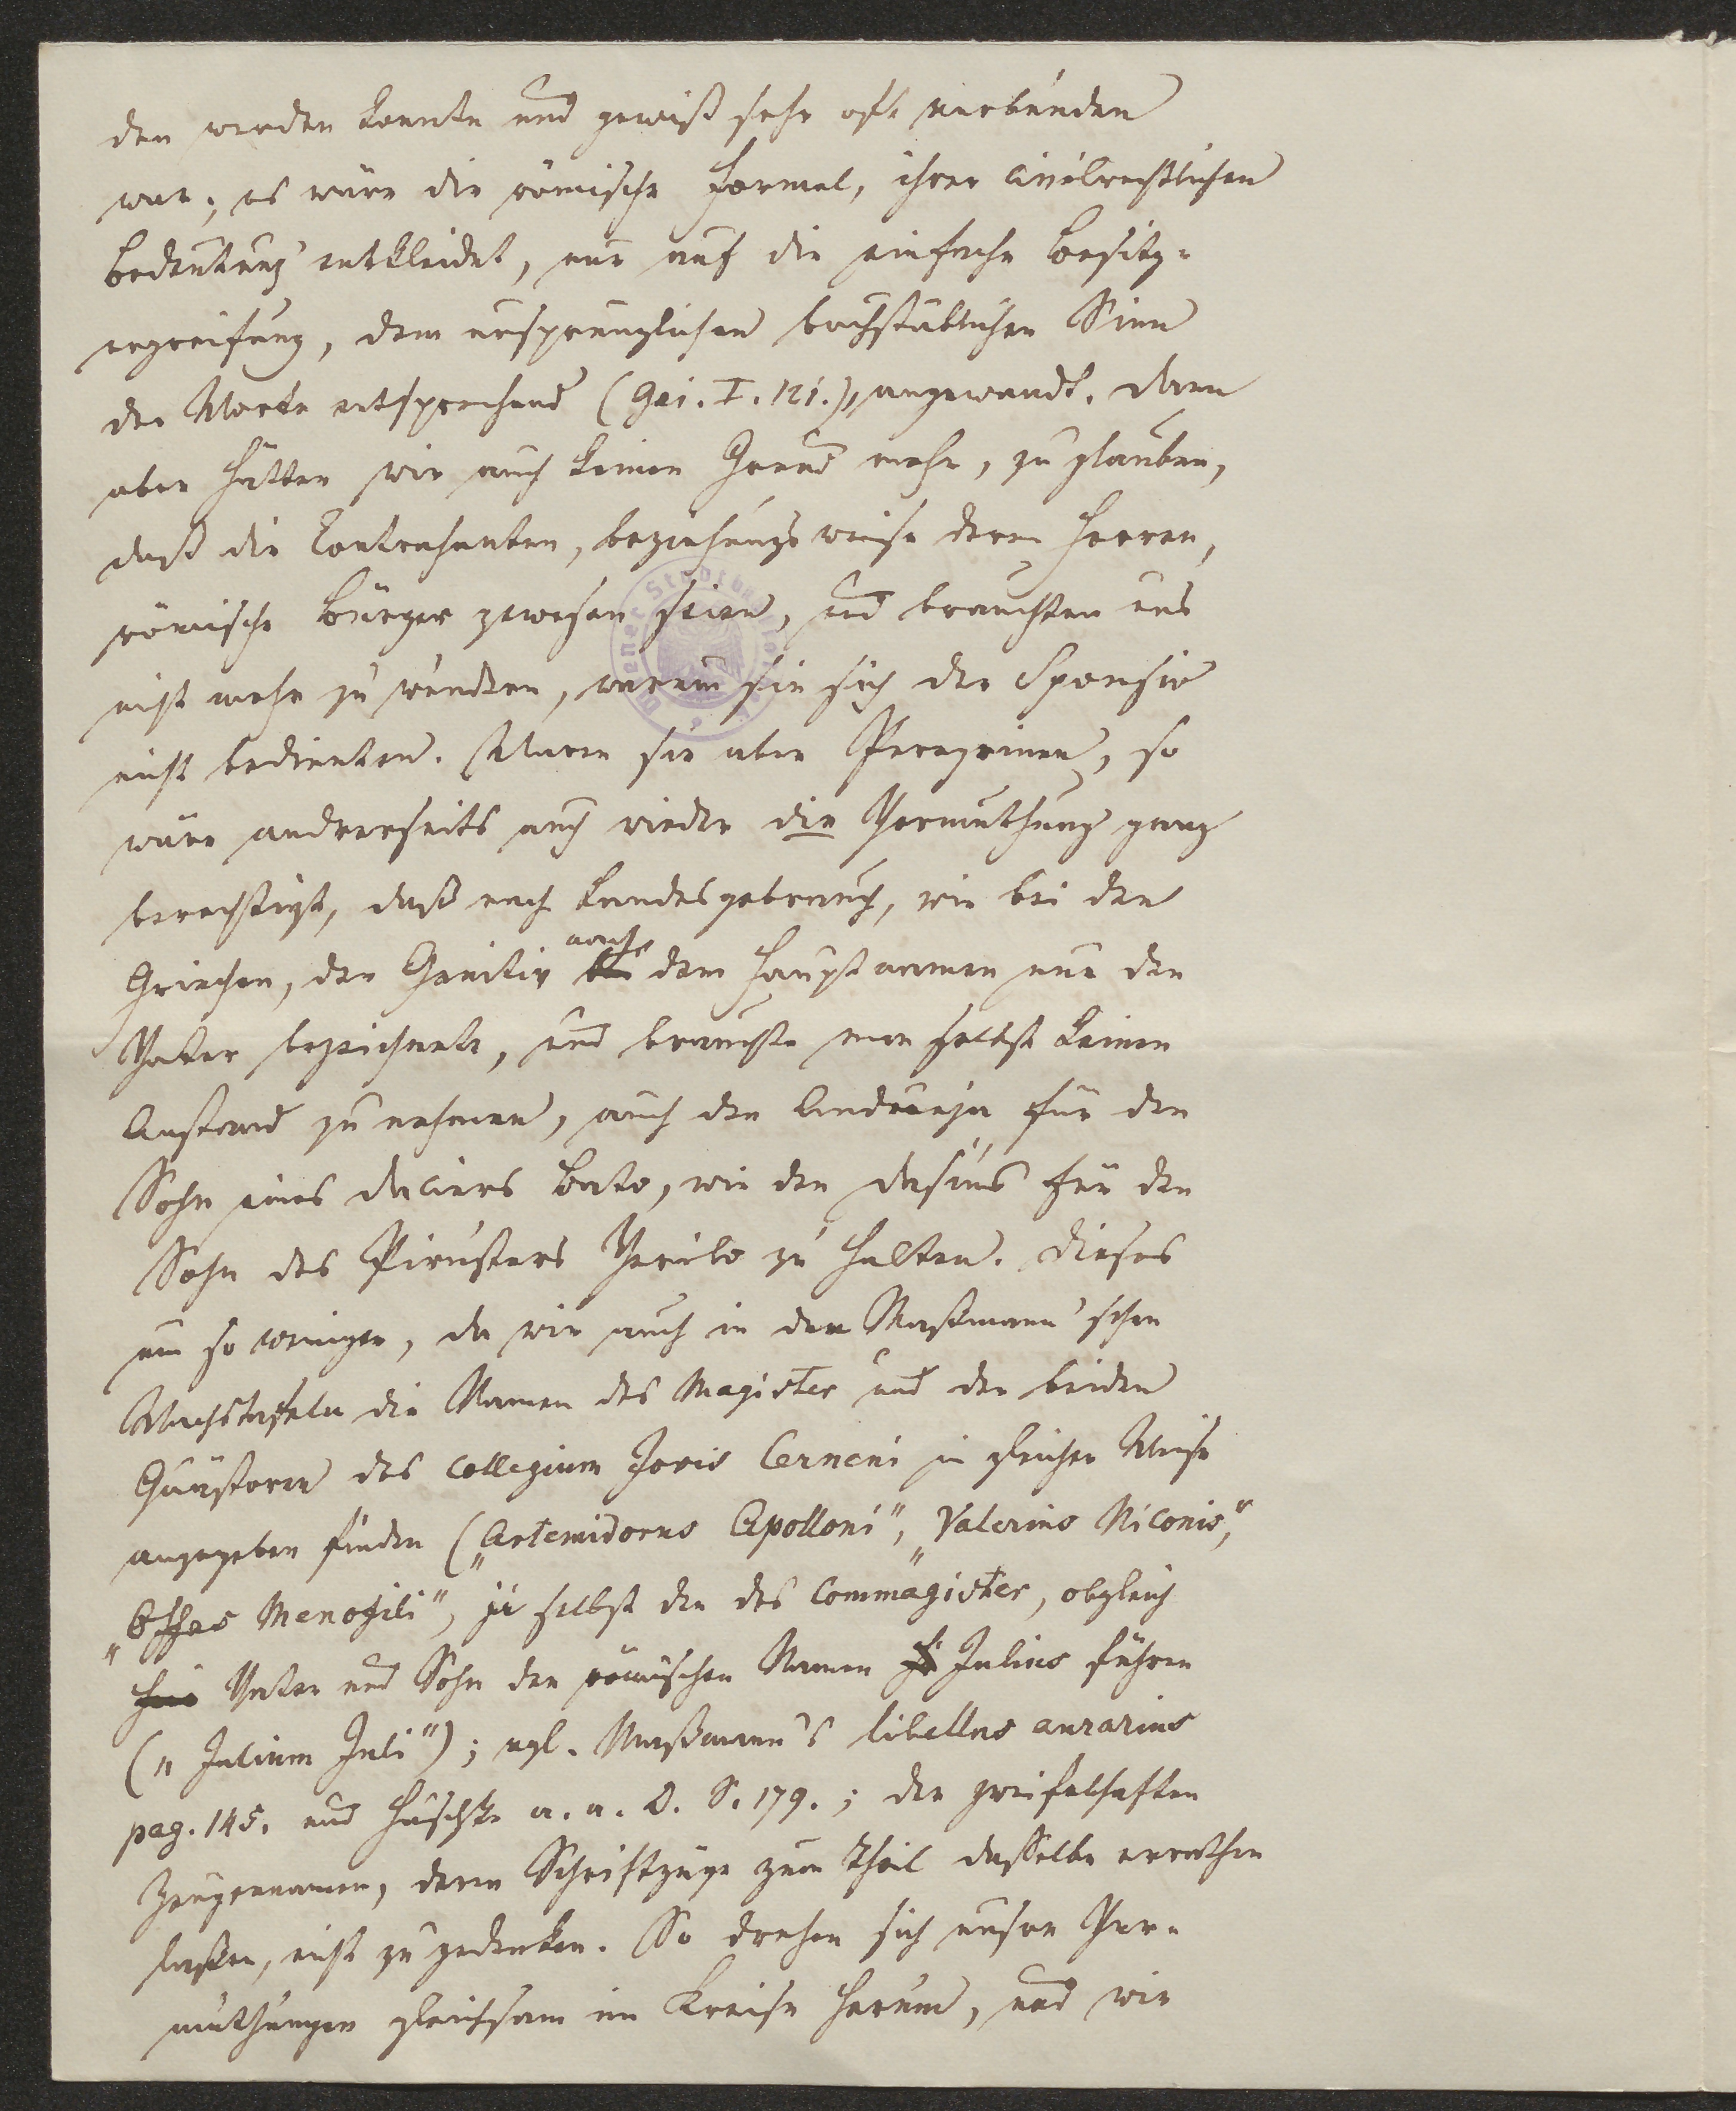 den werden konnte und gewiß sehr oft verbunden
war; es wäre die römische Formel, ihrer civilrechtlichen
Bedeutung entkleidet, nur auf die einfache Besitz-
ergreifung, dem ursprünglichen buchstäblichen Sinn
der Worte entsprechend (Gai. I. 121.), angewandt. Dann
aber hätten wir auch keinen Grund mehr, zu glauben,
daß die Contrahenten, beziehungsweise deren Herren,
römische Bürger gewesen seien, und brauchten uns
nicht mehr zu wundern, warum sie sich der Sponsio
nicht bedienten. Waren sie aber Peregrinen, so
wäre andrerseits auch wieder die Vermuthung ganz
berechtigt, daß nach Landesgebrauch, wie bei den
Griechen, der Genitiv nach dem Hauptnamen nur den
Vater bezeichnete, und brauchte man selbst keinen
Anstand zu nehmen, auch den Andueja für den
Sohn eines Daciers Bato, wie den Dasius für den
Sohn des Pirusters Verzo zu halten. Dieses
um so weniger, da wir auch in den Maßmann'schen
Wachstafeln die Namen des Magister und der beiden
Quästoren des Collegium Jovis Cerneni in gleicher Weise
angegeben finden („Artemidorus Apolloni", „Valerius Niconis,"
„Offas Menofili", ja selbst den des Commagister, obgleich
Vater und Sohn den römischen Namen Julius führen
(„Julium Juli"); vgl. Maßmann's libellus aurarius
pag. 145. und Huschke a. a. O. S. 179.; der zweifelhaften
Zeugennamen, deren Schriftzüge zum Theil dasselbe errathen
laßen, nicht zu gedenken. So drehen sich unsre Ver-
muthungen gleichsam im Kreise herum, und wir